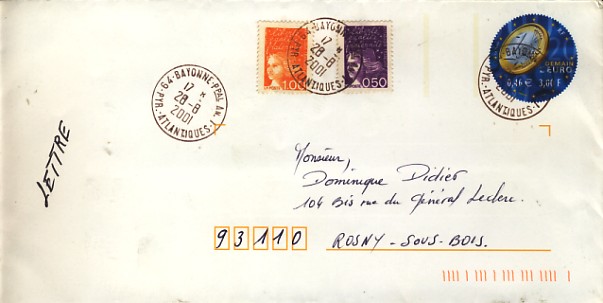 64-BAYONNE-PPAL AN.1
17 *
28-8
2001
PYR.-ATLANTIQUES
64-BAYONNE
17 *
28-8
2001
-ATLANTIQUES-
1,00
0,50
DEMAIN
L'EURO
0,46 € 3,00 F
BAYONNE
2001
PYR.-ATLANTIQUES-
LETTRE
Monsieur,
Dominique Didier
104 Bis rue du Général Leclerc.
93110 ROSNY-SOUS-BOIS.